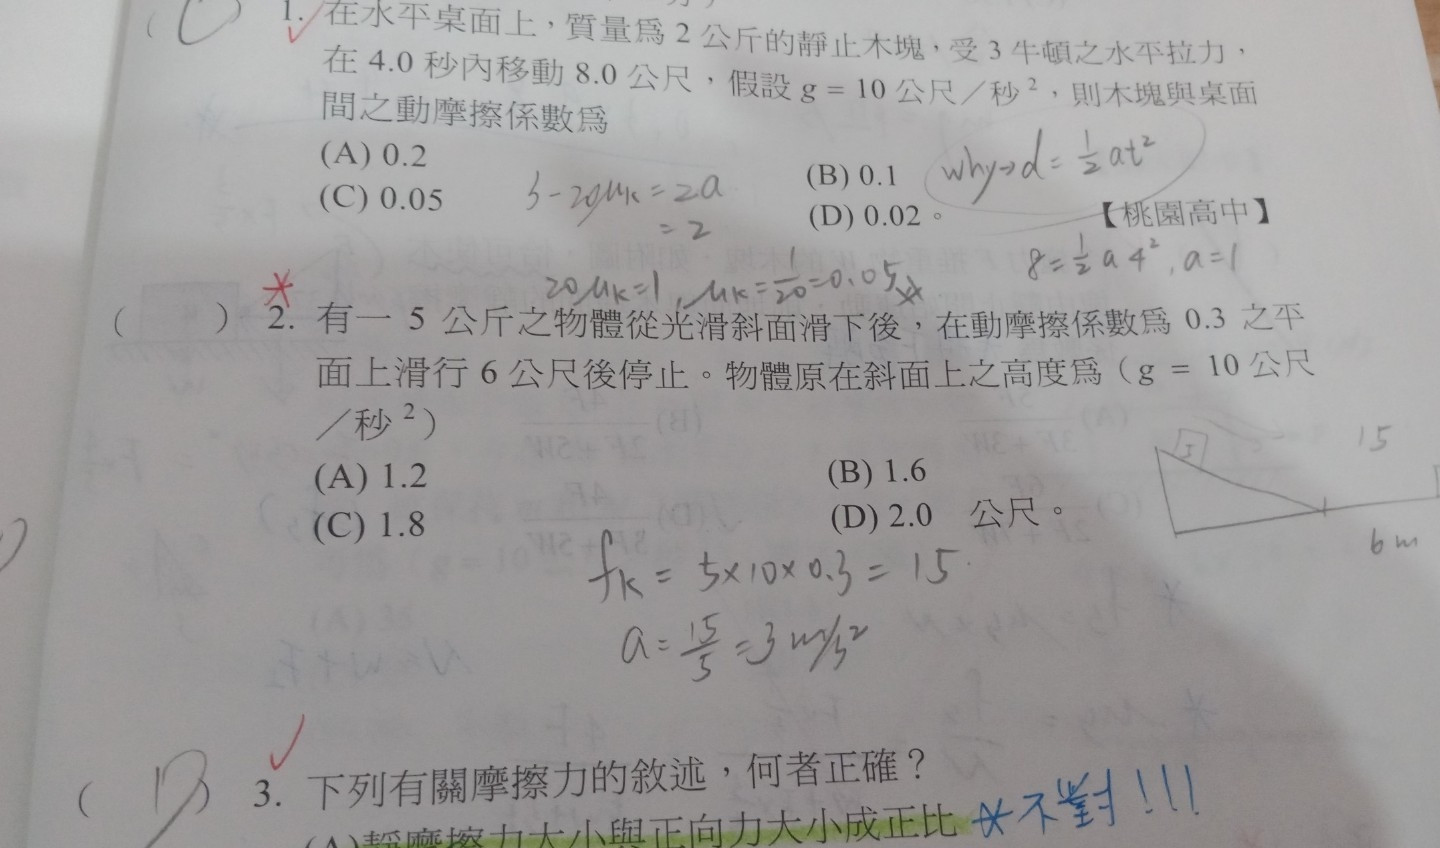 ( C ) 1. 在水平桌面上，質量為 2 公斤的靜止木塊，受 3 牛頓之水平拉力，
在 4.0 秒內移動 8.0 公尺，假設 g = 10 公尺／秒²，則木塊與桌面
間之動摩擦係數為
(A) 0.2 (B) 0.1
(C) 0.05 (D) 0.02。
【桃園高中】
why→d = ½at²
3-20μk = 2a
= 2
8 = ½ a 4², a=1
20μk=1, μk = 1/20 = 0.05
( ) 2. 有一 5 公斤之物體從光滑斜面滑下後，在動摩擦係數為 0.3 之平
面上滑行 6 公尺後停止。物體原在斜面上之高度為（g = 10 公尺
／秒²）
(A) 1.2 (B) 1.6
(C) 1.8 (D) 2.0 公尺。
5
15
6m
fk = 5×10×0.3 = 15
a = 15/5 = 3 m/s²
( D ) 3. 下列有關摩擦力的敘述，何者正確？
(A)靜摩擦力大小與正向力大小成正比 *不對!!!